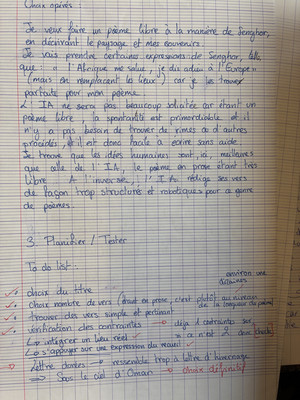 Choix opérés :
Je veux faire un poème libre à la manière de Senghor,
en décrivant le paysage et mes souvenirs.
Je vais prendre certaines expressions de Senghor, telle
que : « l'Afrique me salue, je dis adieu à l'Europe »
(mais en remplacent les lieux) car je les trouve
parfaite pour mon poème.
L'IA ne sera pas beaucoup solicitée car étant un
poème libre, la spontanéité est primordiale et il
n'y a pas besoin de trouver de rimes ou d'autres
procédés, et il est donc facile à écrire sans aide.
Je trouve que les idées humaines sont, ici, meilleures
que celle de l'IA, le poème en prose étant très
libre. A l'inverse, l'IA rédige ses vers
de façon trop structurée et robotiques pour ce genre
de poèmes.
3. Planifier / Tester
To do list :
choix du titre
environ une
dizaines
choix nombre de vers (étant en prose, c'est plutôt au niveau
de la longueur du poème)
trouver des vers simple et pertinent
vérification des contraintes → déjà 2 contraintes sur
↳ intégrer un lieu réel
↳ s'appuyer sur une expression du recueil
Lettre dorées → ressemble trop à lettre d'hivernage
⇒ Sous le ciel d'Oman → choix définitif